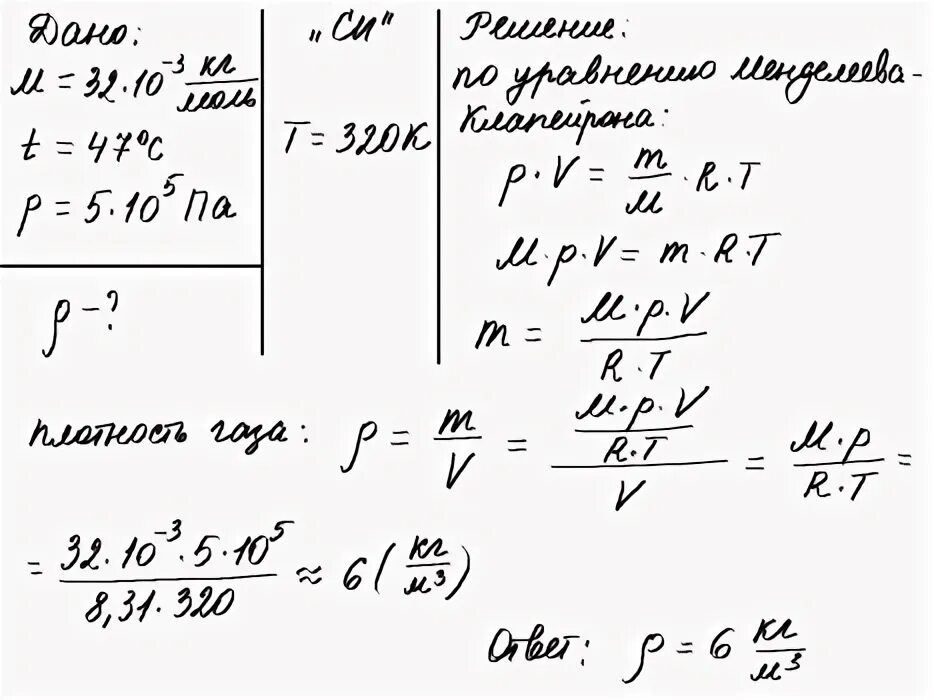 Дано:
M = 32·10⁻³ кг/моль
t = 47°C
p = 5·10⁵ Па
ρ – ?
„СИ"
T = 320К
Решение:
по уравнению Менделеева-
Клапейрона:
p·V = m/M · R·T
M·p·V = m·R·T
m = M·p·V / R·T
плотность газа: ρ = m/V = (M·p·V / R·T) / V = M·p / R·T =
= 32·10⁻³·5·10⁵ / 8,31·320 ≈ 6 (кг/м³)
Ответ: ρ = 6 кг/м³